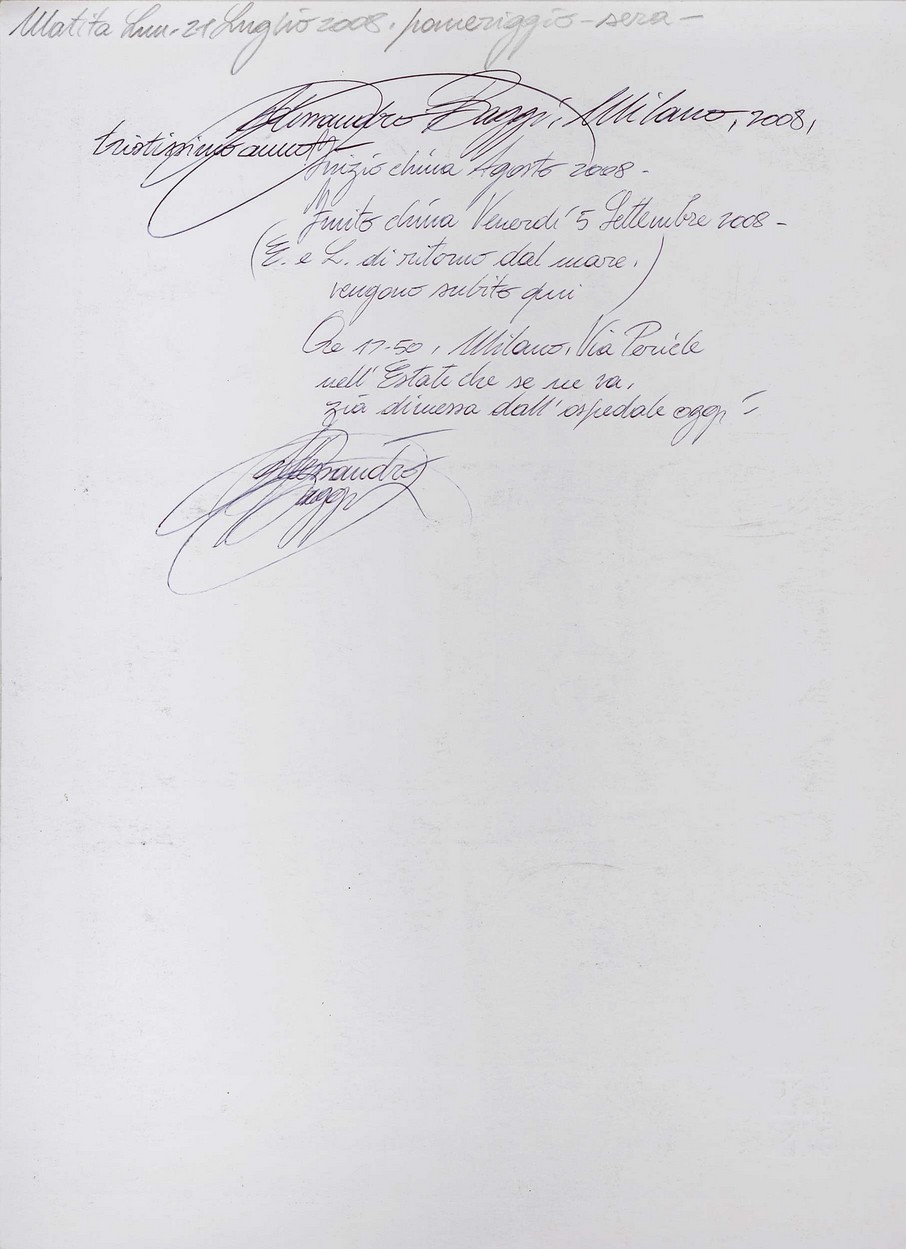 Matita Lun. 21 Luglio 2008. pomeriggio-sera-
Alessandro Baggi, Milano, 2008,
tristissimo anno
Inizio china Agosto 2008 -
Finito china Venerdí 5 Settembre 2008 -
(E. e L. di ritorno dal mare,
vengono subito qui)
Ore 17-50, Milano, Via Pericle
nell' Estate che se ne va,
già dimessa dall' ospedale oggi -
Alessandro
Baggi